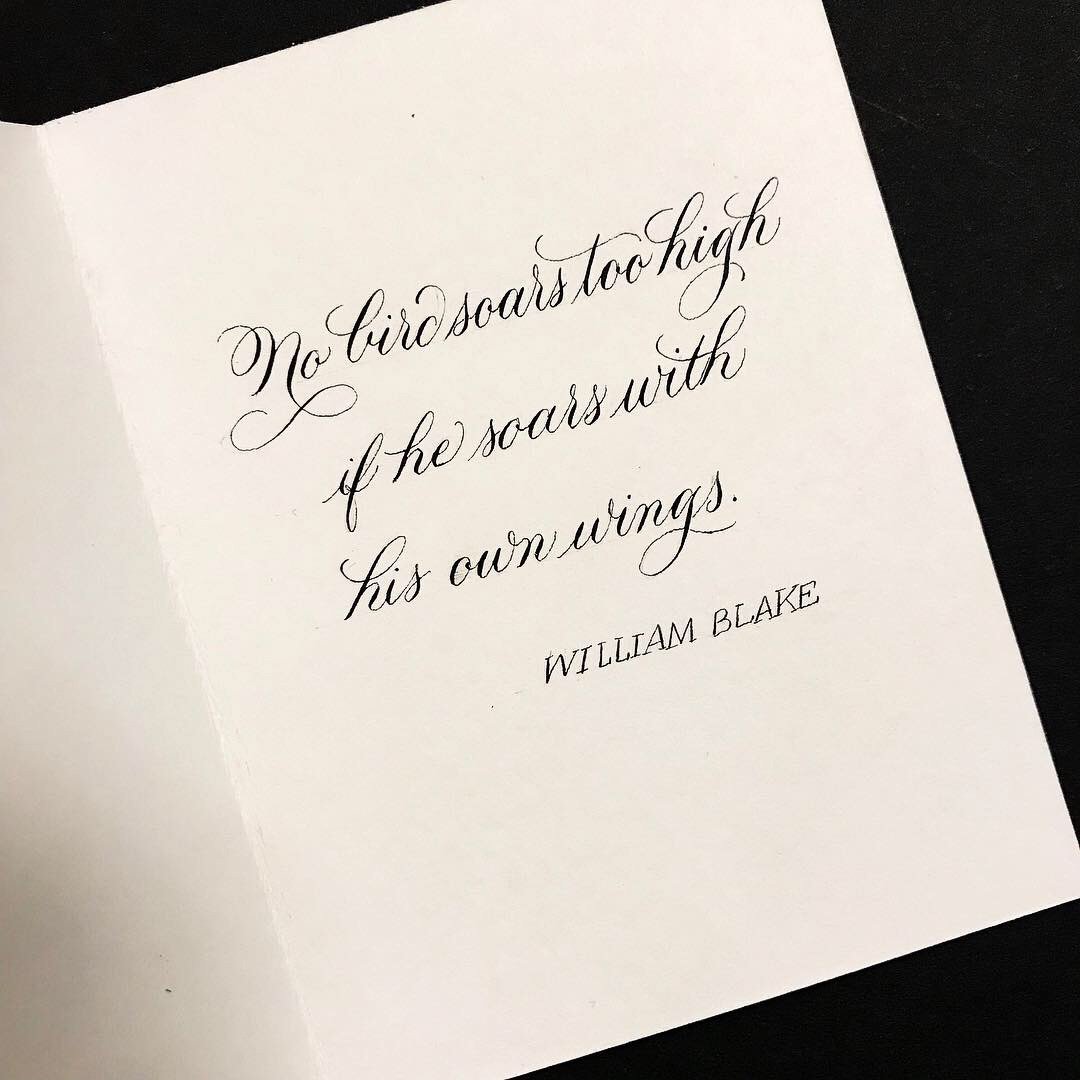 No bird soars too high
if he soars with
his own wings.
WILLIAM BLAKE